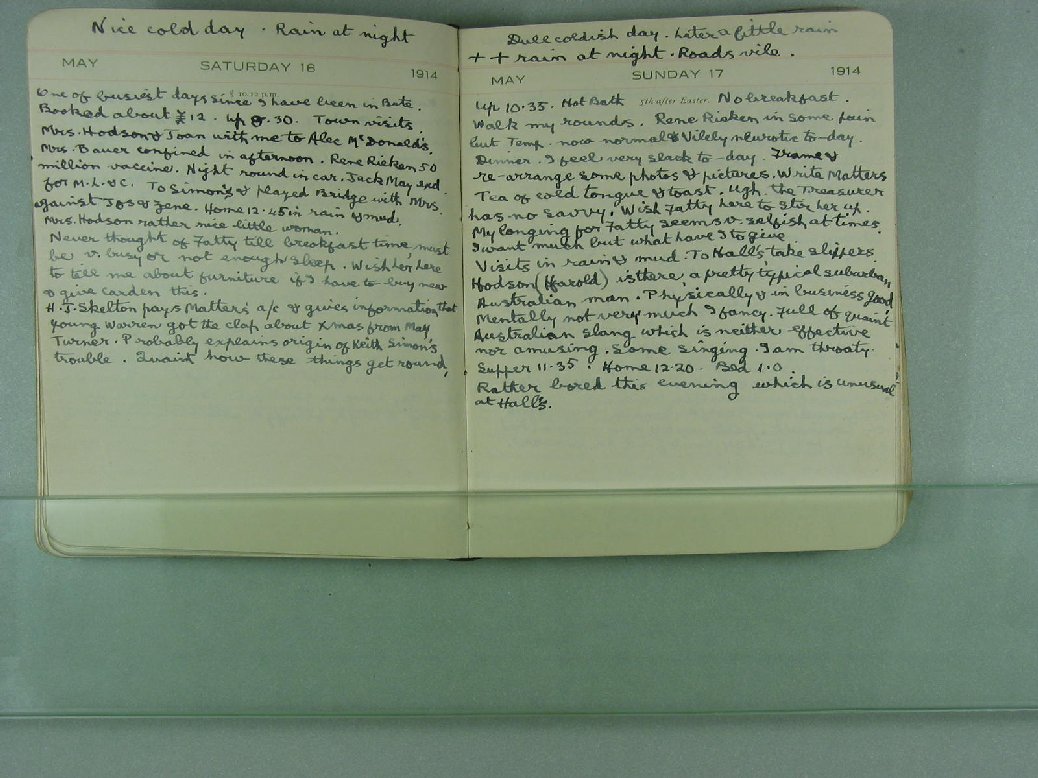 Nice cold day. Rain at night
MAY SATURDAY 16 1914
One of busiest days since I have been in Bute.
Booked about £12. Up 8.30. Town visits.
Mrs. Hodson & Joan with me to Alec McDonald's.
Mrs. Bauer confined in afternoon. Rene Rieken 50
million vaccine. Night round in car. Jack May and
for M.L. & C. To Simon's & played Bridge with Mrs.
against Jos & Zene. Home 12.45 in rain & mud.
Mrs. Hodson rather nice little woman.
Never thought of Fatty till breakfast time, must
be v. busy or not enough sleep. Wish her here
to tell me about furniture if I have to buy new
& give carden this.
H.J. Skelton pays Matters a/c & gives information that
young Warren got the clap about Xmas from May
Turner. Probably explains origin of Keith Simon's
trouble. Quaint how these things get round.
Dull coldish day. Later a little rain
++ rain at night. Roads vile.
MAY SUNDAY 17 1914
5th after Easter.
Up 10.35. Hot Bath. No breakfast.
Walk my rounds. Rene Rieken in some pain
but Temp. now normal & vilely neurotic to-day.
Dinner. I feel very slack to-day. Frame &
re-arrange some photos & pictures. Write Matters
Tea of cold tongue & toast. Ugh. the Treasurer
has no savvy. Wish Fatty here to stir her up.
My longing for Fatty seems v. selfish at times.
I want much but what have I to give
Visits in rain & mud. To Hall's take slippers.
Hodson (Harold) is there, a pretty typical suburban
Australian man. Physically & in business good,
Mentally not very much I fancy. Full of quaint
Australian slang which is neither effective
nor amusing. Some singing. I am throaty.
Supper 11.35. Home 12.20. Bed 1.0.
Rather bored this evening which is unusual
at Hall's.